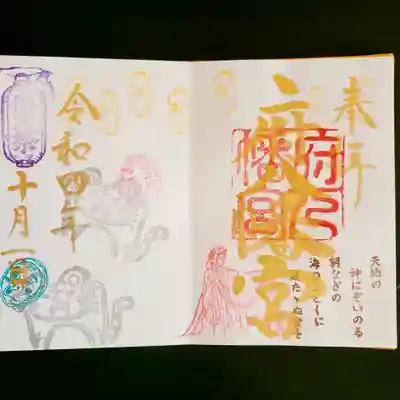 奉拝
府八
幡宮
天地の
神にぞいのる
朝なぎの
海のごとくに
波たたぬ世を
令和四年
十月一日